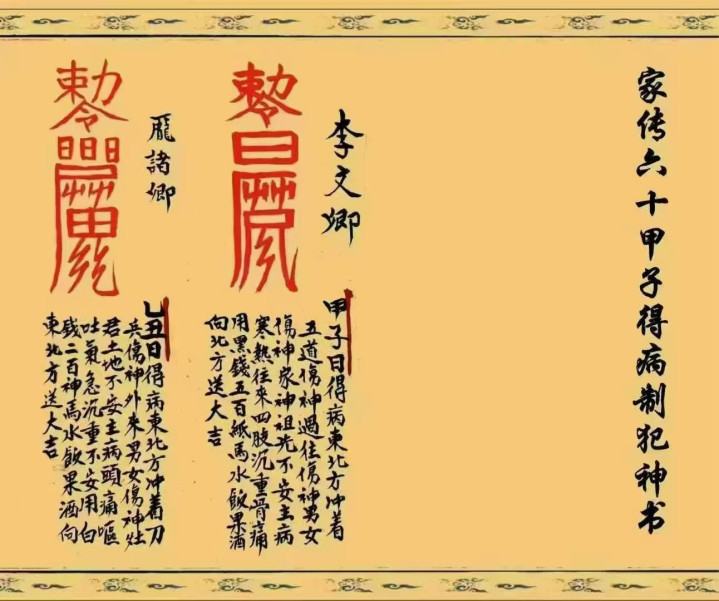 家传六十甲子得病制犯神书
李文卿
甲子日得病東北方冲着
五道傷神過往傷神男女
傷神家神祖先不安主病
寒熱往来四肢沉重骨痛
用黑錢五百紙馬水飯果酒
向北方送大吉
龐諸卿
乙丑日得病東北方冲着刀
兵傷神外来男女傷神灶
君土地不安主病頭痛嘔
吐氣急沉重不安用白
錢二百神馬水飯果酒向
東北方送大吉